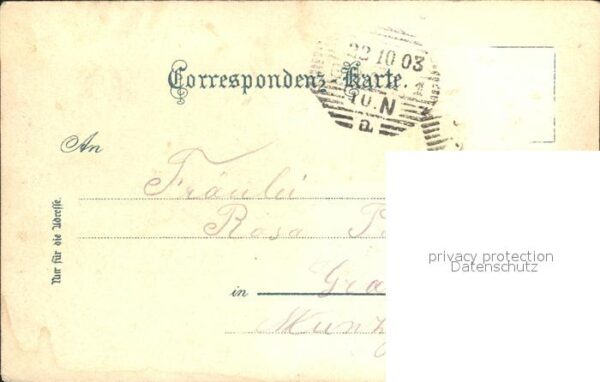 22 10 03
10.N
a
Correspondenz-Karte.
An
Fräulei
Rosa
Nur für die Adresse.
in Gra
privacy protection
Datenschutz